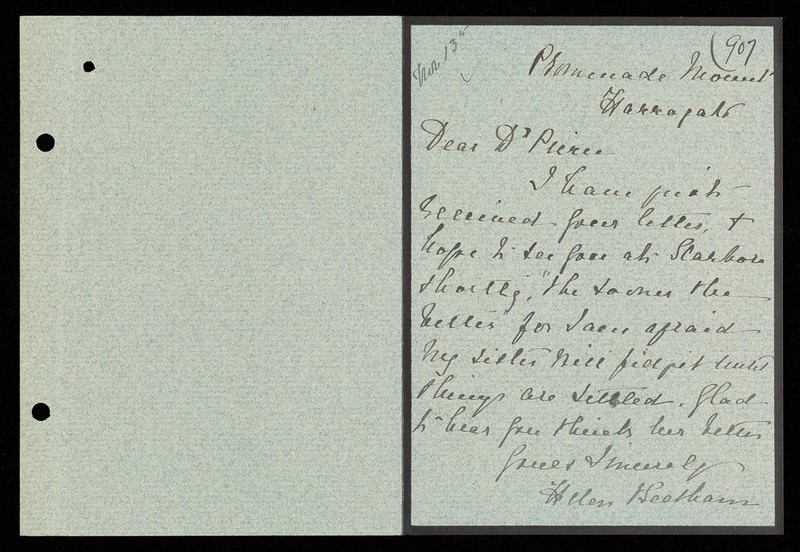 (907
Nov 13th
Promenade Mount
Harrogate
Dear Dr Pierce
I have just
received your letter, &
hope to see you at Scarboro
shortly, "the sooner the
better" for I am afraid
my sister will fidget until
things are settled. Glad
to hear you think her better
Yours Sincerely
Helen Beetham